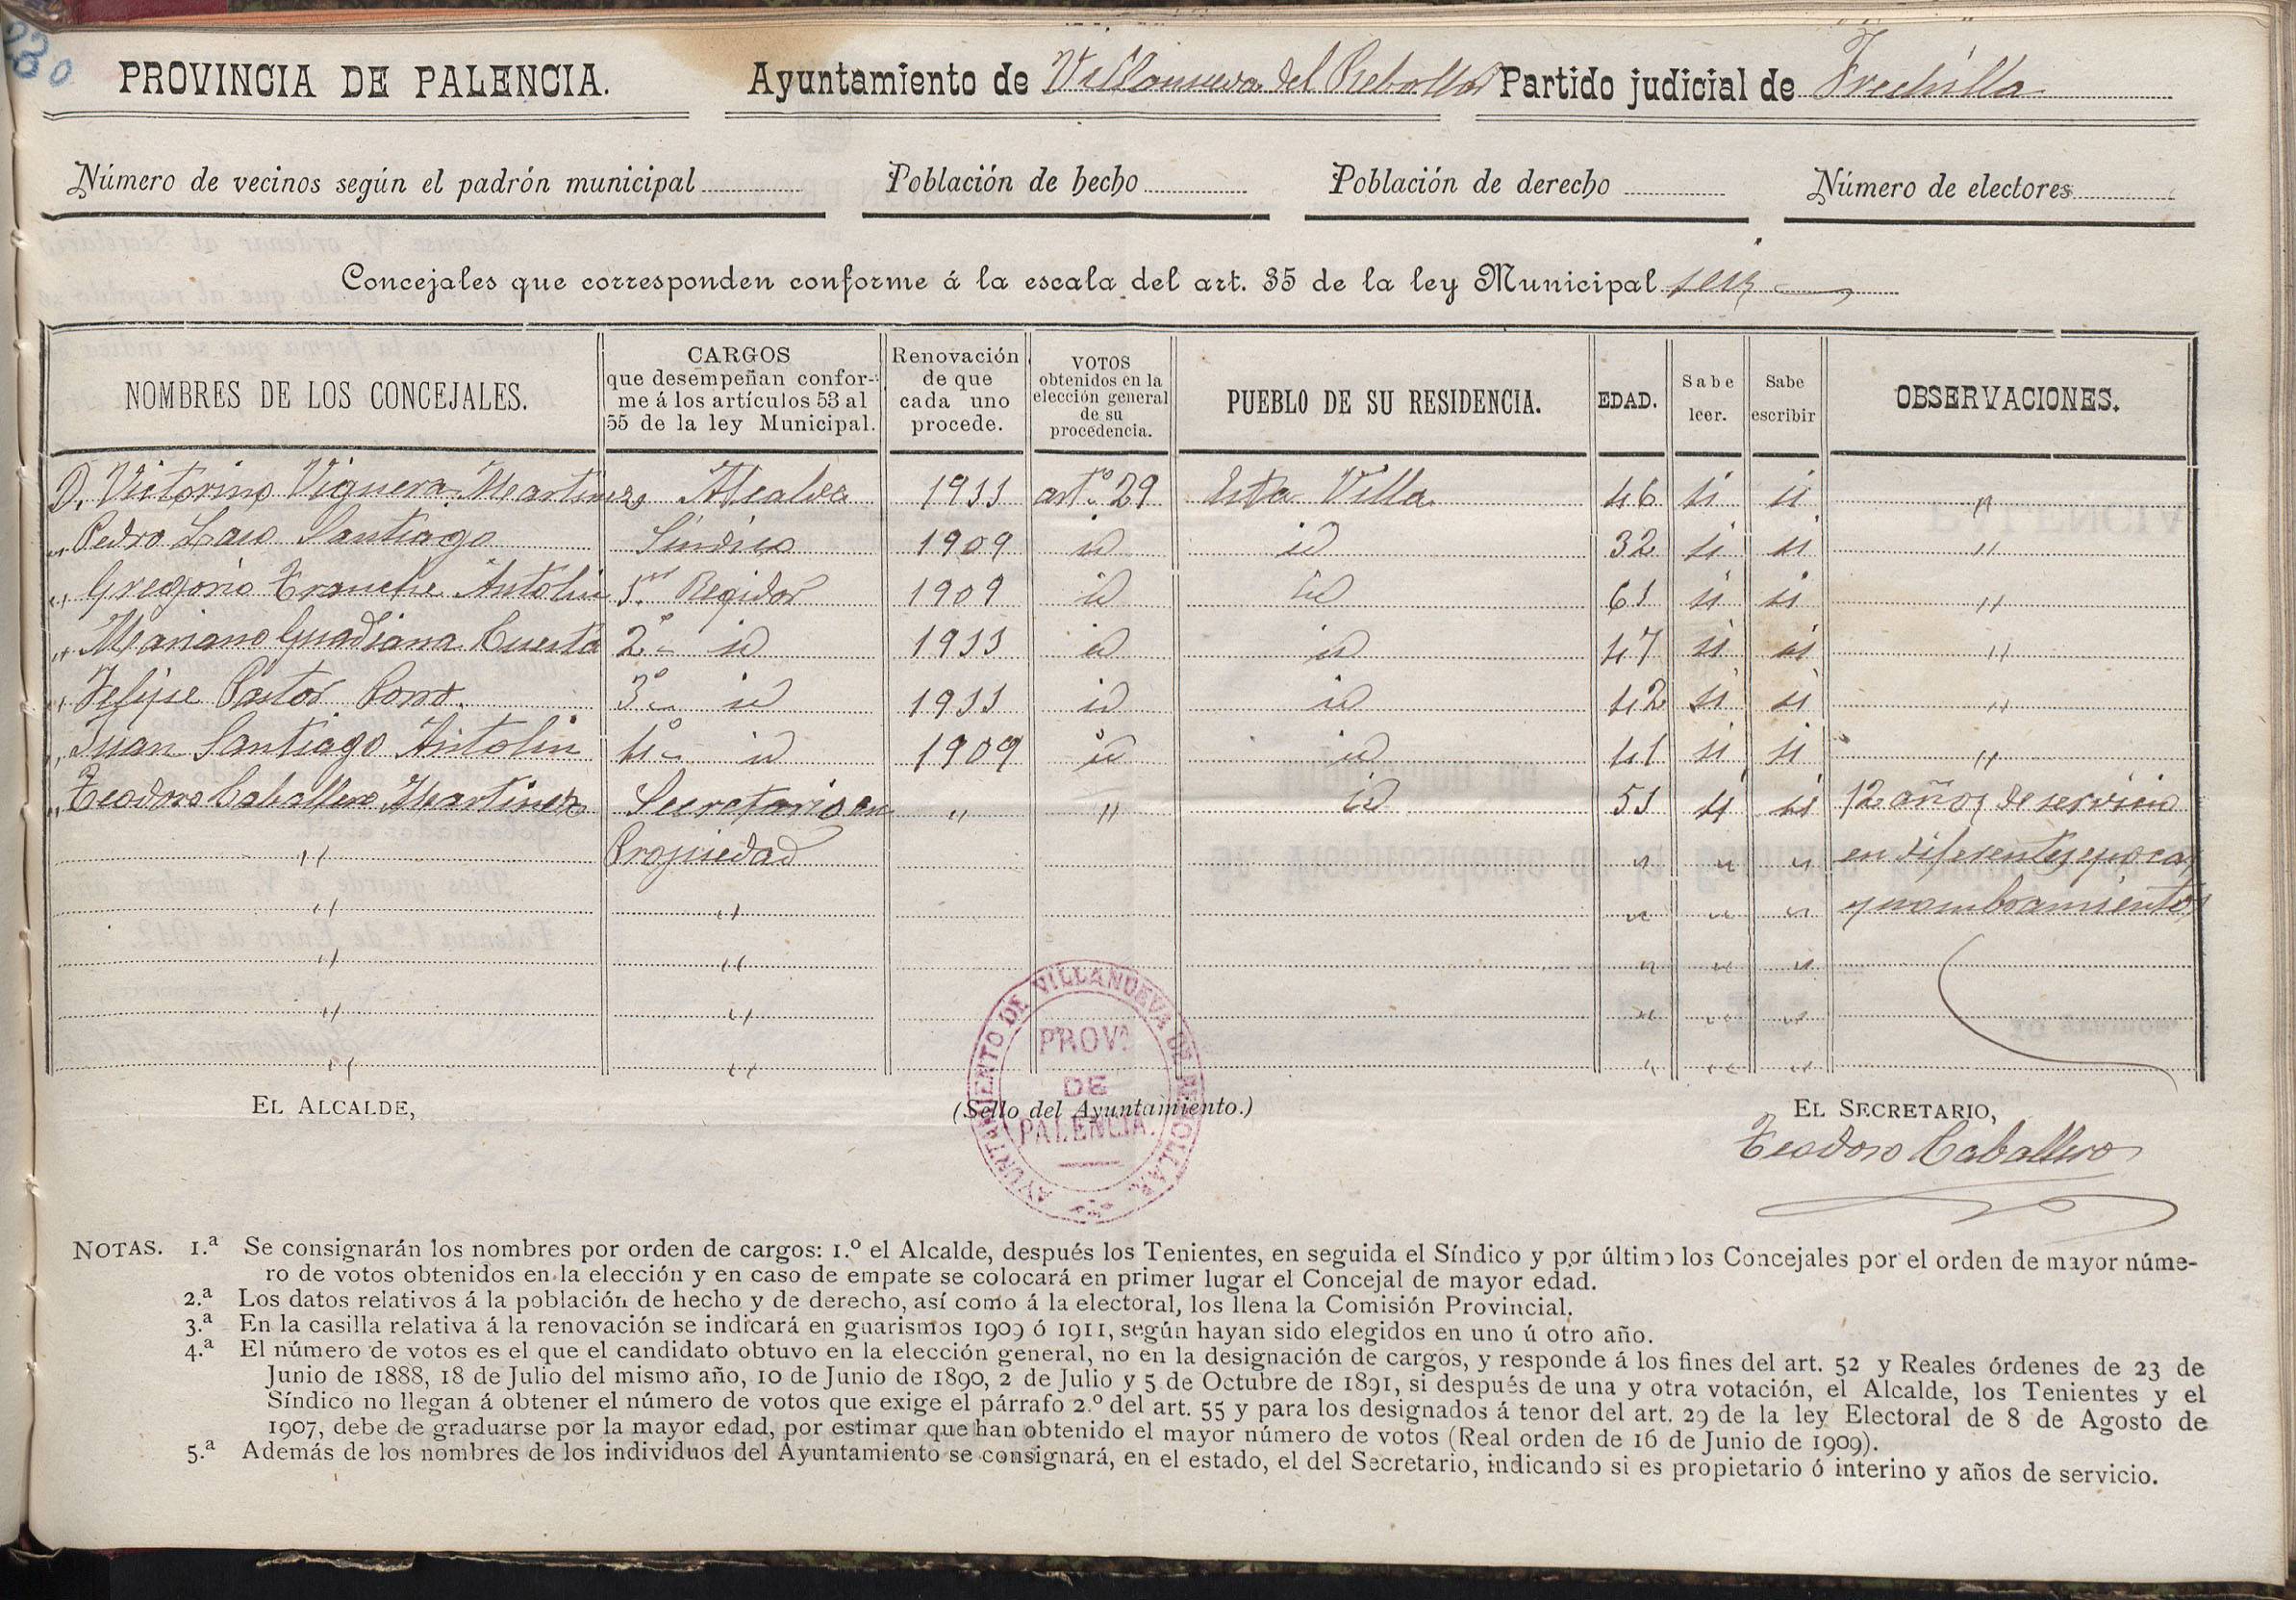 230
PROVINCIA DE PALENCIA. Ayuntamiento de Villanueva del Rebollar Partido judicial de Frechilla
Número de vecinos según el padrón municipal Población de hecho Población de derecho Número de electores
Concejales que corresponden conforme á la escala del art. 35 de la ley Municipal seis
NOMBRES DE LOS CONCEJALES. CARGOS que desempeñan confor- me á los artículos 53 al 55 de la ley Municipal. Renovación de que cada uno procede. VOTOS obtenidos en la elección general de su procedencia. PUEBLO DE SU RESIDENCIA. EDAD. Sabe leer. Sabe escribir OBSERVACIONES.
D. Victorino Viguera Martinez Alcalde 1911 artº 29 Esta Villa 46 si si "
" Pedro Laso Santiago Sindico 1909 id id 32 si si "
" Gregorio Tranche Antolin 1er Regidor 1909 id id 61 si si "
" Mariano Guadiana Cuesta 2º id 1911 id id 47 si si "
" Felipe Pastor Porro. 3º id 1911 id id 42 si si "
" Juan Santiago Antolin 4º id 1909 id id 41 si si "
" Teodoro Caballero Martinez Secretario en " " id 51 si si 12 años de servicio
" Propiedad " " " en diferentes epocas
" " " " " y nombramientos
" " " " "
" " " " "
" " " " "
EL ALCALDE, (Sello del Ayuntamiento.) EL SECRETARIO,
AYUNTAMIENTO DE VILLANUEVA DE REBOLLAR
PROVª
DE
PALENCIA.
Teodoro Caballero
NOTAS. 1.ª Se consignarán los nombres por orden de cargos: 1.º el Alcalde, después los Tenientes, en seguida el Síndico y por último los Concejales por el orden de mayor núme-
ro de votos obtenidos en la elección y en caso de empate se colocará en primer lugar el Concejal de mayor edad.
2.ª Los datos relativos á la población de hecho y de derecho, así como á la electoral, los llena la Comisión Provincial.
3.ª En la casilla relativa á la renovación se indicará en guarismos 1909 ó 1911, según hayan sido elegidos en uno ú otro año.
4.ª El número de votos es el que el candidato obtuvo en la elección general, no en la designación de cargos, y responde á los fines del art. 52 y Reales órdenes de 23 de
Junio de 1888, 18 de Julio del mismo año, 10 de Junio de 1890, 2 de Julio y 5 de Octubre de 1891, si después de una y otra votación, el Alcalde, los Tenientes y el
Síndico no llegan á obtener el número de votos que exige el párrafo 2.º del art. 55 y para los designados á tenor del art. 29 de la ley Electoral de 8 de Agosto de
1907, debe de graduarse por la mayor edad, por estimar que han obtenido el mayor número de votos (Real orden de 16 de Junio de 1909).
5.ª Además de los nombres de los individuos del Ayuntamiento se consignará, en el estado, el del Secretario, indicando si es propietario ó interino y años de servicio.